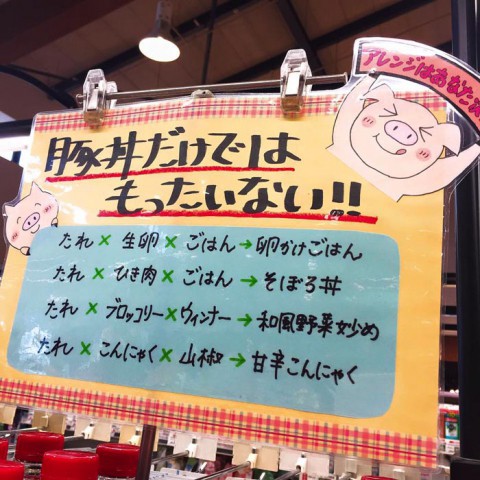 アレンジはあなた
豚丼だけでは
もったいない!!
たれ × 生卵 × ごはん → 卵かけごはん
たれ × ひき肉 × ごはん → そぼろ丼
たれ × ブロッコリー × ウィンナー → 和風野菜炒め
たれ × こんにゃく × 山椒 → 甘辛こんにゃく